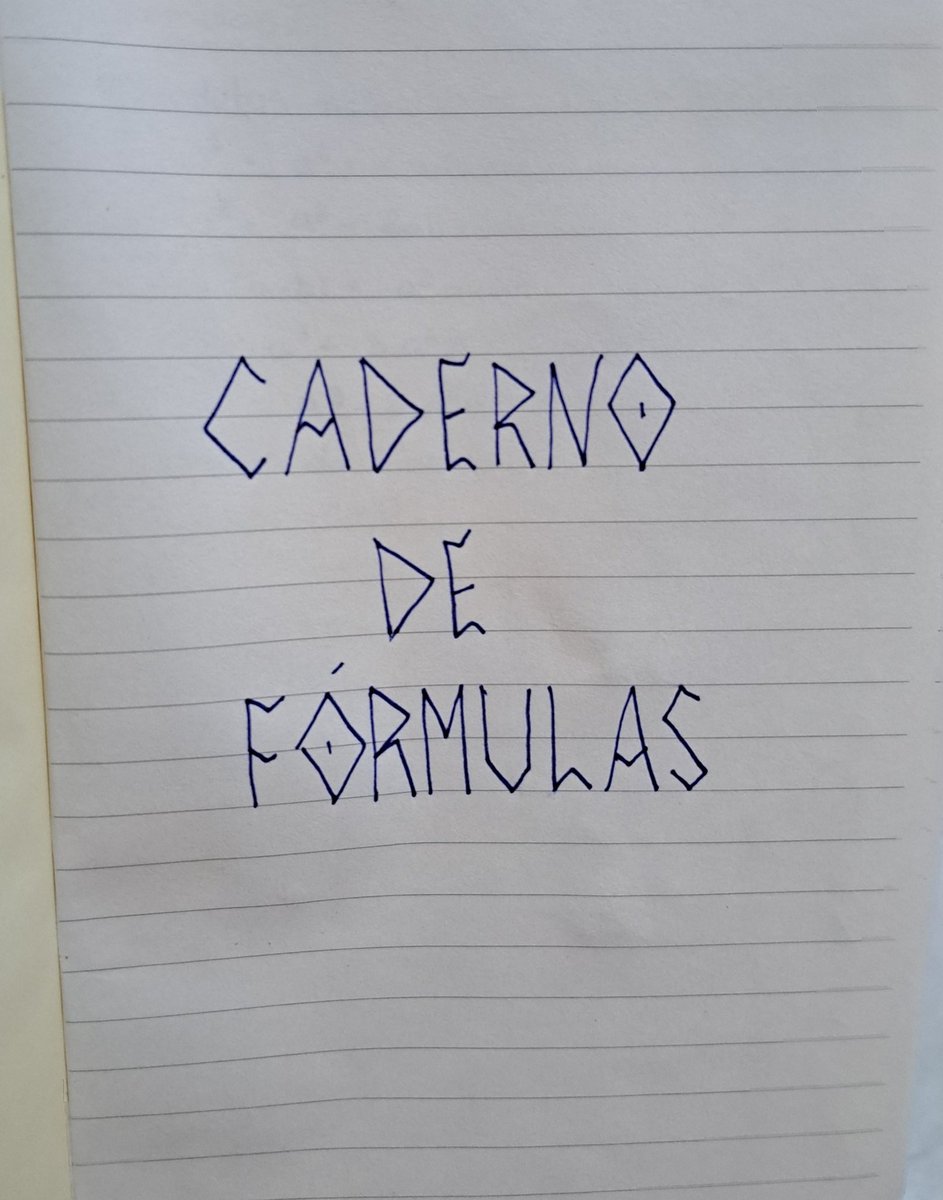 CADERNO
DE
FÓRMULAS